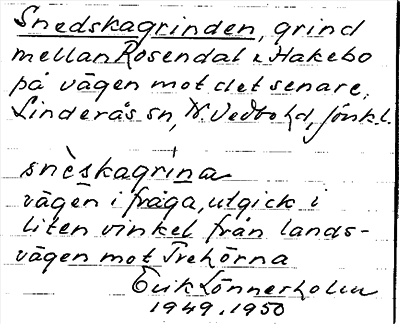 Snedskagrinden, grind
mellan Rosendal & Hakebo
på vägen mot det senare,
Linderås sn, N. Vedbo hd, Jönk.l.
snèskagrına
vägen i fråga, utgick i
liten vinkel från lands-
vägen mot Trehörna
Erik Lönnerholm
1949, 1950